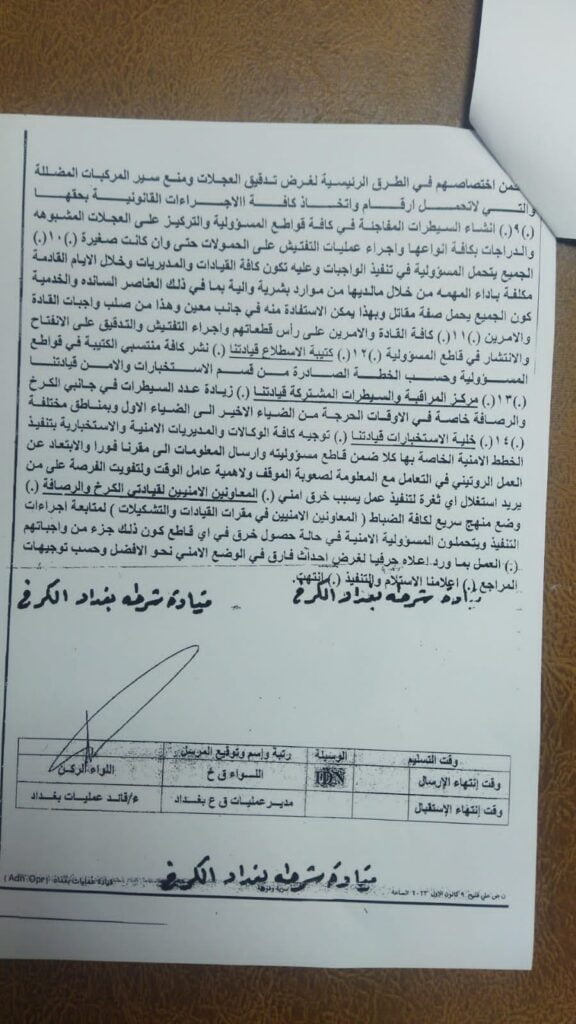 ضمن اختصاصهم في الطرق الرئيسية لغرض تدقيق العجلات ومنع سير المركبات المضللة
والتي لاتحمل ارقام واتخاذ كافة الاجراءات القانونية بحقها
(.)٩(.) انشاء السيطرات المفاجئة في كافة قواطع المسؤولية والتركيز على العجلات المشبوهه
والدراجات بكافة انواعها واجراء عمليات التفتيش على الحمولات حتى وان كانت صغيرة (.)١٠(.)
الجميع يتحمل المسؤولية في تنفيذ الواجبات وعليه تكون كافة القيادات والمديريات وخلال الايام القادمة
مكلفة باداء المهمه من خلال مالديها من موارد بشرية والية بما في ذلك العناصر السانده والخدمية
كون الجميع يحمل صفة مقاتل وبهذا يمكن الاستفادة منه في جانب معين وهذا من صلب واجبات القادة
والامرين (.)١١(.) كافة القادة والامرين على رأس قطعاتهم واجراء التفتيش والتدقيق على الانفتاح
والانتشار في قاطع المسؤولية (.)١٢(.) كتيبة الاسطلاع قيادتنا (.) نشر كافة منتسبي الكتيبة في قواطع
المسؤولية وحسب الخطة الصادرة من قسم الاستخبارات والامن قيادتنا
(.)١٣(.) مركز المراقبة والسيطرات المشتركة قيادتنا (.) زيادة عدد السيطرات في جانبي الكرخ
والرصافة خاصة في الاوقات الحرجة من الضياء الاخير الى الضياء الاول وبمناطق مختلفة
(.)١٤(.) خلية الاستخبارات قيادتنا (.) توجيه كافة الوكالات والمديريات الامنية والاستخبارية بتنفيذ
الخطط الامنية الخاصة بها كلا ضمن قاطع مسؤوليته وارسال المعلومات الى مقرنا فورا والابتعاد عن
العمل الروتيني في التعامل مع المعلومة لصعوبة الموقف ولاهمية عامل الوقت ولتفويت الفرصة على من
يريد استغلال اي ثغرة لتنفيذ عمل يسبب خرق امني (.) المعاونين الامنيين لقيادتي الكرخ والرصافة (.)
وضع منهج سريع لكافة الضباط ( المعاونين الامنيين في مقرات القيادات والتشكيلات ) لمتابعة اجراءات
التنفيذ ويتحملون المسؤولية الامنية في حالة حصول خرق في اي قاطع كون ذلك جزء من واجباتهم
(.) العمل بما ورد اعلاه حرفيا لغرض احداث فارق في الوضع الامني نحو الافضل وحسب توجيهات
المراجع (.) اعلامنا الاستلام والتنفيذ (.) انتهت.
قيادة شرطه بغداد الكرخ قيادة شرطه بغداد الكرخ
وقت التسليم الوسيلة رتبة وإسم وتوقيع المرسل
وقت إنتهاء الإرسال IDN اللواء ق خ اللواء الركن
وقت إنتهاء الإستقبال مدير عمليات ق ع بغداد ع/قائد عمليات بغداد
قيادة شرطه بغداد الكرخ
٩ كانون الاول ٢٠٢٣ الساعة قيادة عمليات بغداد (Adn Opr)